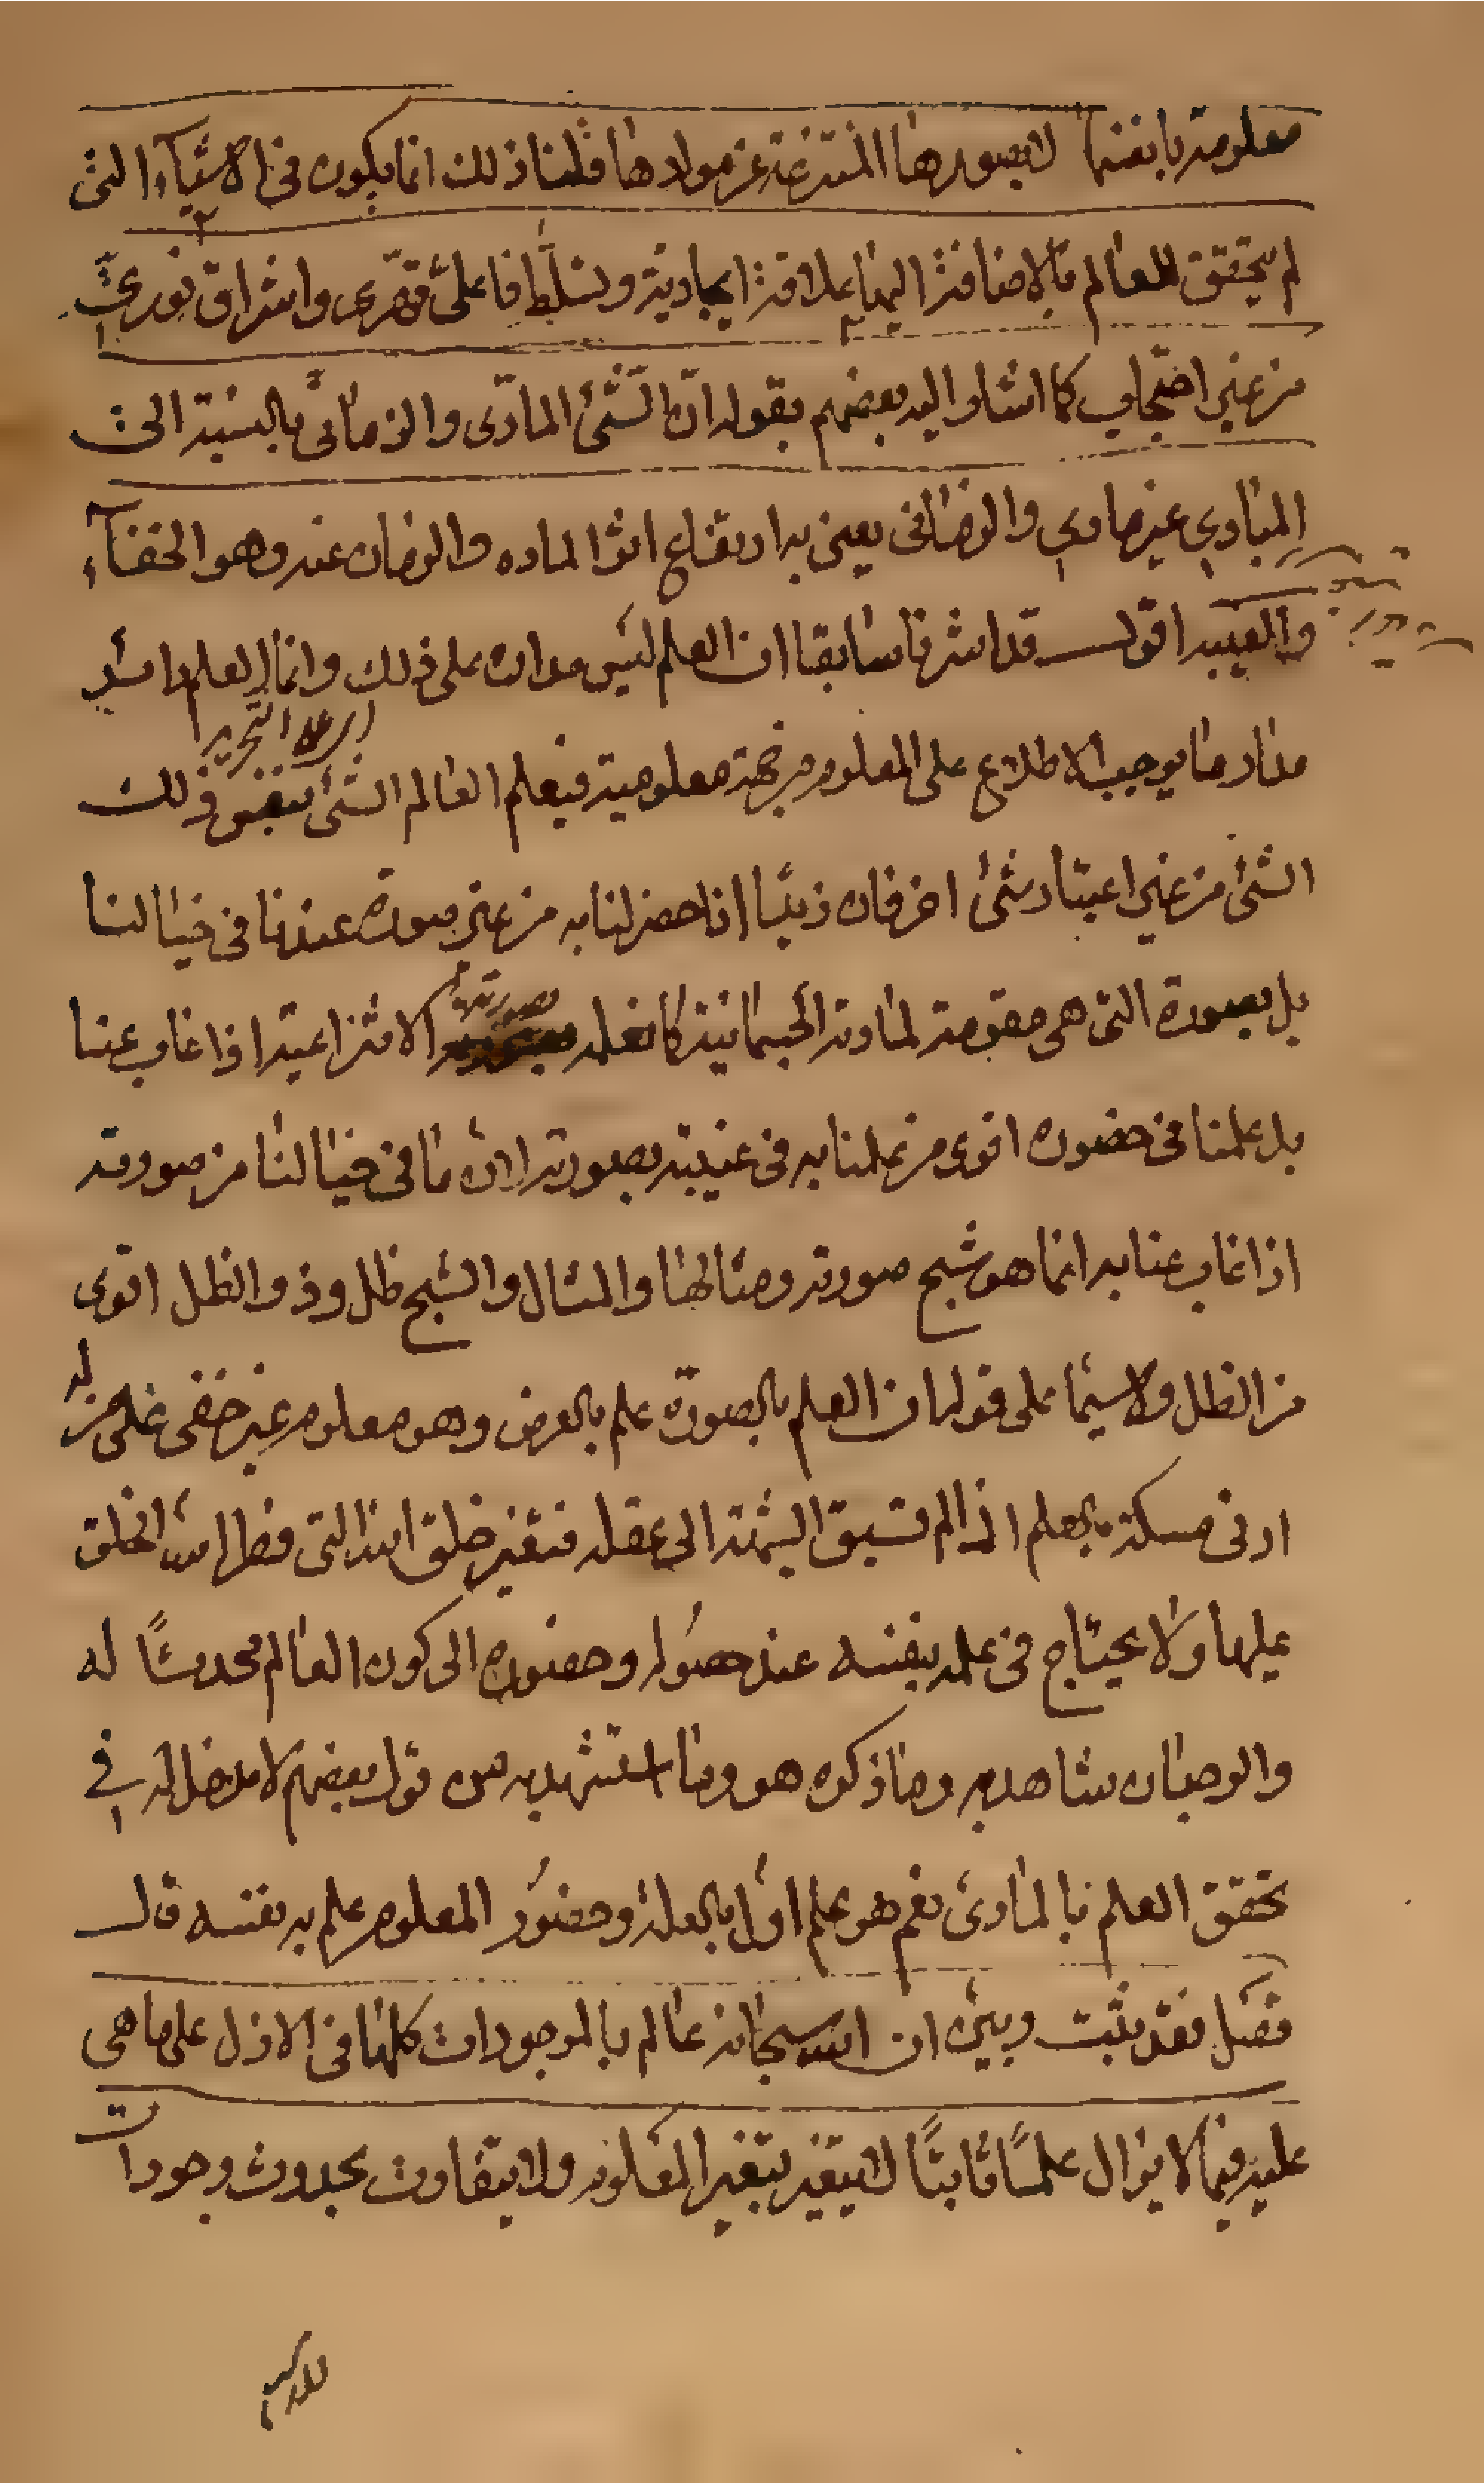 معلومة بانفسها لا بصورها المنتزعة عن موادها قلنا ذلك انما يكون في الاشيآء التي
لم يتحقق للعالم بالاضافة اليها علاقة ايجادية وتسلّط فاعلىّ قهّرى واشراق نورىّ
من غير احتجاب كما اشار اليه بعضهم بقوله انّ الشّىء المادّى والزمانىّ بالنسبة الى
المبادي غير مادي والزماني يعنى به ارتفاع اثر الماده والزمان عنه وهو الخفآء
والغيبه اقول قد اشرنا سابقا ان العلم ليس مداره على ذلك وانما العلم
مدار ما يوجب الاطلاع على المعلوم من جهة معلومية فيعلم العالم الشىء بنفس ذلك
الشىء من غير اعتبار شىء اخر فان زيدًا اذا حضر لنا به من غير صورة عندنا في خيالنا
بل بصورة التي هي مقومة لمادته الجسمانية كما نعلمه بصورته الانتزاعية اذا غاب عنا
بل علمنا في حضوره اقوى من علمنا به في غيبته بصورته لان ما في خيالنا من صورته
اذا غاب عنا به انما هو شبح صورته ومثالها والمثال والشبح ظل وذو الظل اقوى
من الظل ولا سيما على قوله ان العلم بالصورة علم بالعرض وهو معلوم غير خفى على من له
ادنى مسكة بالعلم اذا لم تسبق الشبهة الى عقله فتغير خلق الله التي فطر الله الخلق
عليها ولا يحتاج في علمه بنفسه عند حصوله وحضوره الى كون العالم محدثًا له
والوجدان شاهد به وما ذكره هو وما استشهد به من قول بعضهم لا مدخل له في
تحقق العلم بالمادى نعم هو علم اول بالعلة وحضور المعلوم علم به نفسه قال
فصل فقد ثبت وبين ان الله سبحانه عالم بالموجودات كلها في الازل على ما هى
عليه فيما لا يزال علمًا ثابتًا لا يتغير بتغير المعلوم ولا يتفاوت بحدوث وجودات